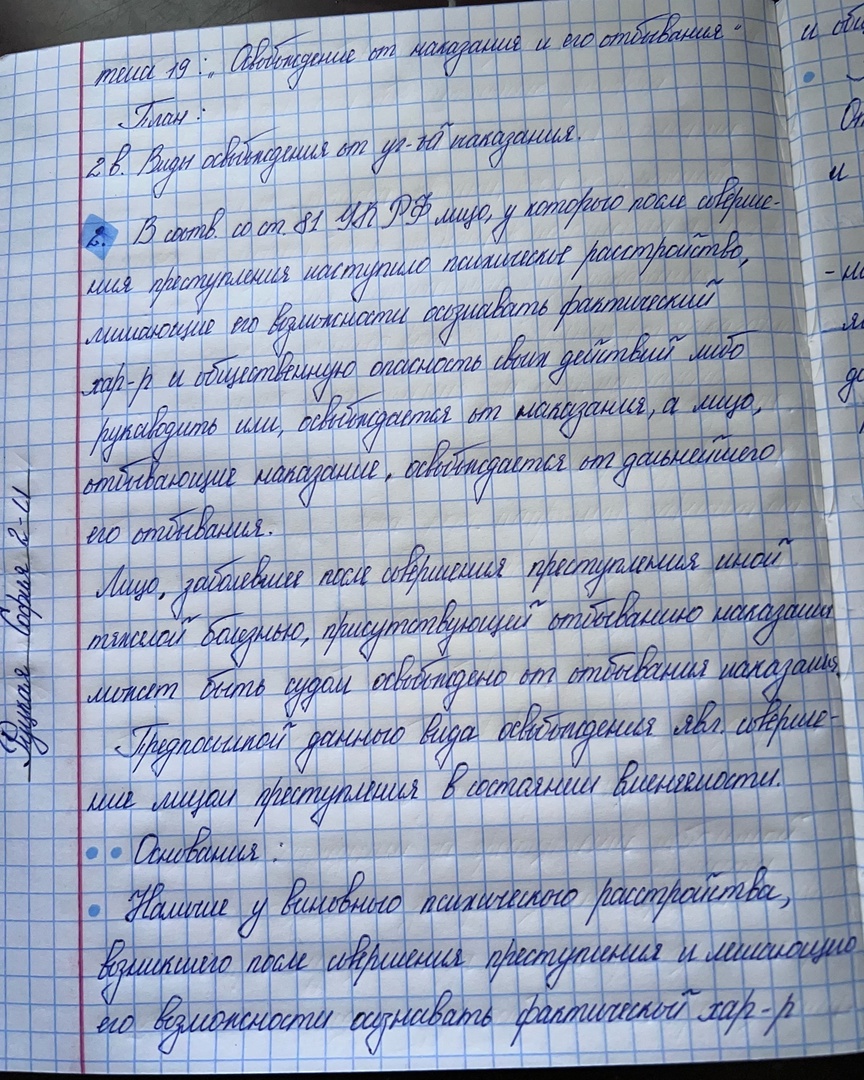 тема 19: „Освобождение от наказания и его отбывания"
План:
2 в. Виды освобождения от уг-ой наказания.
2. В соотв. со ст. 81 УК РФ лицо, у которого после соверше-
ния преступления наступило психическое расстройство,
лишающие его возможности осознавать фактический
хар-р и общественную опасность своих действий либо
руководить или, освобождается от наказания, а лицо,
отбывающие наказание, освобождается от дальнейшего
его отбывания.
Лицо, заболевшее после совершения преступления иной
тяжелой болезнью, присутствующий отбыванию наказания
может быть судом освобождено от отбывания наказания.
Предпосылкой данного вида освобождения явл. соверше-
ние лицом преступления в состоянии вменяемости.
Основания:
Наличие у виновного психического расстройства,
возникшего после совершения преступления и лешающию
его возможности осознавать фактический хар-р
София 2-11
и
От
и
- на